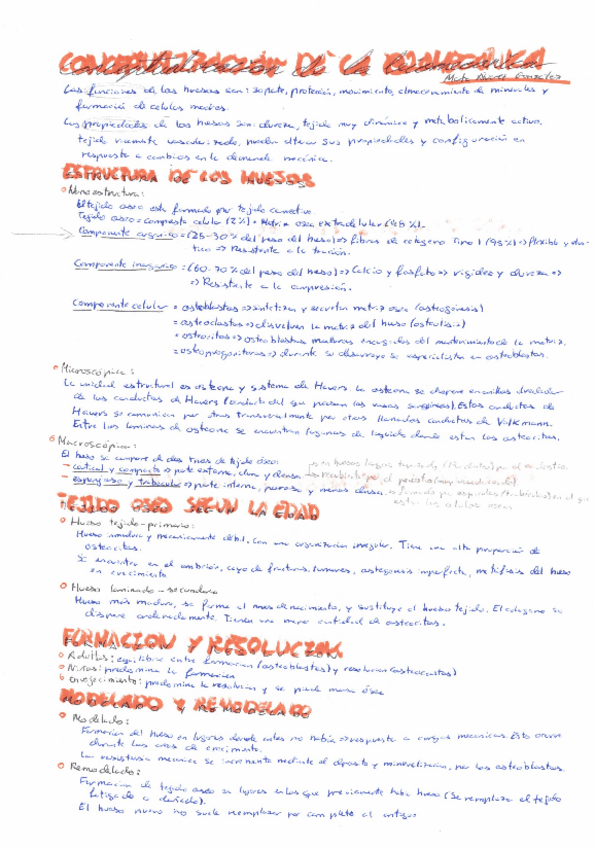 Conceptualización de la biomecánica
Las funciones de los huesos son: soporte, protección, movimiento, almacenamiento de minerales y
formación de celulas madres.
Las propiedades de los huesos son: dureza, tejido muy dinámico y metabolicamente activo,
tejido vascularizado, pueden alterar sus propiedades y configuración en
respuesta a cambios en la demanda mecánica.
ESTRUCTURA DE LOS HUESOS
El tejido oseo esta formado por tejido conectivo
Tejido oseo = compuesto celular (2%) + Matriz osea extracelular (98%).
Componente organico = (25-30% del peso del hueso) => fibras de colageno tipo 1 (95%) => flexible y elas-
tico => Resistente a la tracción.
Componente inorganico = (60-70% del peso del hueso) => Calcio y fosfato => rigidez y dureza =>
=> Resistente a la compresión.
Componente celular = osteoblastos => sintetizan y secretan matriz osea (osteogenesis)
= osteoclastos => disuelven la matriz del hueso (osteolisis)
= osteocitos => osteoblastos maduros encargados del mantenimiento de la matriz.
= osteoprogenitoras => durante su desarrollo se especializa en osteoblastos.
Microscópica:
La unidad estructural es osteona y sistema de Havers. La osteona se dispone en anillos alrededor
de los conductos de Havers (conducto del que pasan los vasos sanguineos). Estos conductos de
Havers se comunican por otros transversalmente por otros llamados conductos de Volkmann.
Entre las laminas de osteona se encuentra lagunas de liquido donde estan los osteocitos.
Macroscópica:
El hueso se compone de dos tipos de tejido óseo:
- cortical y compacto => parte externa, dura y densa
- esponjoso y trabecular => parte interna, porosa y menos densa
TEJIDO OSEO SEGUN LA EDAD
Hueso tejido-primario:
Hueso inmaduro y mecanicamente débil, con una organización irregular. Tiene una alta proporción de
osteocitos.
Se encuentra en el embrión, callo de fracturas, tumores, osteogenesis imperfecta, metáfisis del hueso
en crecimiento
Hueso laminado - secundario
Hueso más maduro, se forma al mes de nacimiento, y sustituye al hueso tejido. El colageno se
dispone ordenadamente. Tienen una menor cantidad de osteocitos.
FORMACION Y RESOLUCION
Adultos: equilibrio entre formación (osteoblastos) y resolución (osteoclastos)
Niños: predomina la formación
Envejecimiento: predomina la resolución y se pierde masa ósea
MODELADO Y REMODELADO
Modelado:
Formación del hueso en lugares donde antes no había => respuesta a cargas mecánicas. Esto ocurre
durante los años de crecimiento.
La resistencia mecanica se incrementa mediante el deposito y mineralización, por los osteoblastos.
Remodelado:
Formación de tejido oseo en lugares en los que previamente había hueso (Se remplaza el tejido
fatigado o dañado).
El hueso nuevo no suele reemplazar por completo al antiguo